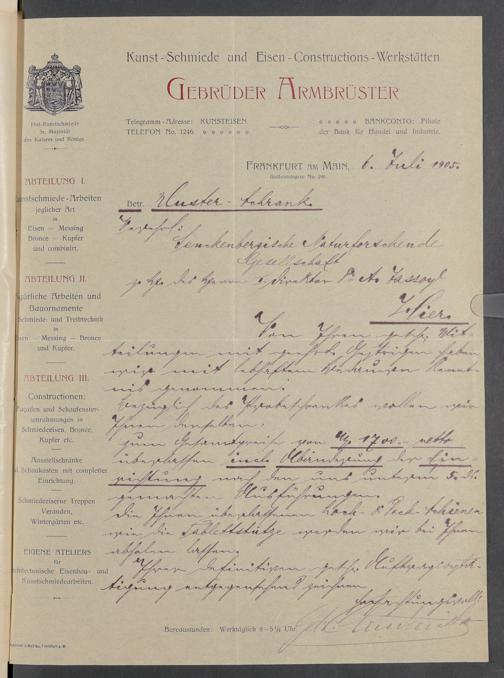 Kunst-Schmiede und Eisen-Constructions-Werkstätten
GEBRÜDER ARMBRÜSTER
Hof-Kunstschmiede
Sr. Majestät
des Kaisers und Königs.
Telegramm-Adresse: KUNSTEISEN.
TELEFON No. 1246.
BANKCONTO: Filiale
der Bank für Handel und Industrie.
FRANKFURT AM MAIN, 6. Juli 1905.
ABTEILUNG I.
Kunstschmiede-Arbeiten
jeglicher Art
in
Eisen – Messing
Bronce – Kupfer
und combinirt.
ABTEILUNG II.
Figürliche Arbeiten und
Bauornamente
Schmiede- und Treibtechnik
in
Eisen – Messing – Bronce
und Kupfer.
ABTEILUNG III.
Constructionen:
Façaden und Schaufenster-
umrahmungen in
Schmiedeeisen, Bronce,
Kupfer etc.
Ausstellschränke
und Schaukasten mit completter
Einrichtung.
Schmiedeeiserne Treppen
Veranden,
Wintergärten etc.
EIGENE ATELIERS
für
architectonische Eisenbau- und
Kunstschmiedearbeiten.
Betr. Muster-Schrank.
Senckenbergische Naturforschende
Gesellschaft
z. Hd. des Herrn Direktor A. Jassoy
Hier.
Von Ihren gefl. Mit-
teilungen mit haben
wir mit Kennt-
nis genommen.
Bezüglich des Probeschrankes wollen wir
Ihnen denselben
zum Gesamtpreise von M 1700.- netto
überlassen incl. Abänderung der Ein-
richtung nach den uns unterm 5. ds.
gemachten Ausführungen.
Die Ihnen überlassenen
wie die Tablettstütze werden wir bei Ihnen
abholen lassen.
Ihrer definitiven gefl. Auftragsertei-
tigung entgegensehend zeichnen
hochachtungsvoll
Bureaustunden: Werktäglich 8–5¼ Uhr.